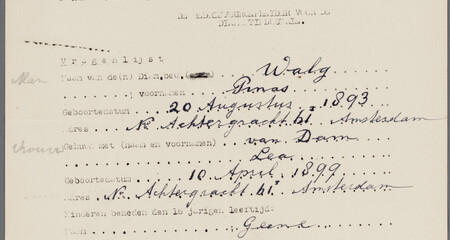 DE
V r a g e n l i j s t
Man Naam van de(n) Diam. bew. Walg
; voornamen Pinas
Geboortedatum 20 Augustus 1893
Adres Nw Achtergracht 61 I Amsterdam
vrouw Gehuwd met (naam en voornamen) van Dam
Lea
Geboortedatum 10 April 1899
Adres Nw Achtergracht 61 I Amsterdam
Kinderen beneden den 16 jarigen leeftijd:
Naam Geene